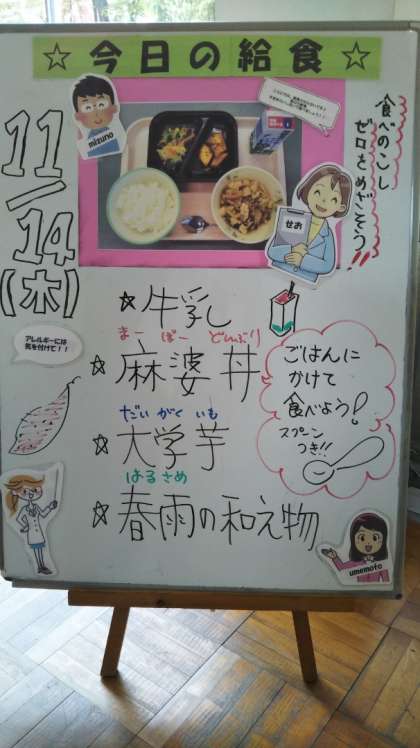 ☆今日の給食☆
mizuno
食べのこし
ゼロをめざそう!!
11/14
(木)
せお
☆牛乳
まーぼーどんぶり
☆麻婆丼
アレルギーには
気を付けて!!
ごはんに
かけて
食べよう!
スプーン
つき!!
だいがくいも
☆大学芋
はるさめ
☆春雨の和え物
umemoto